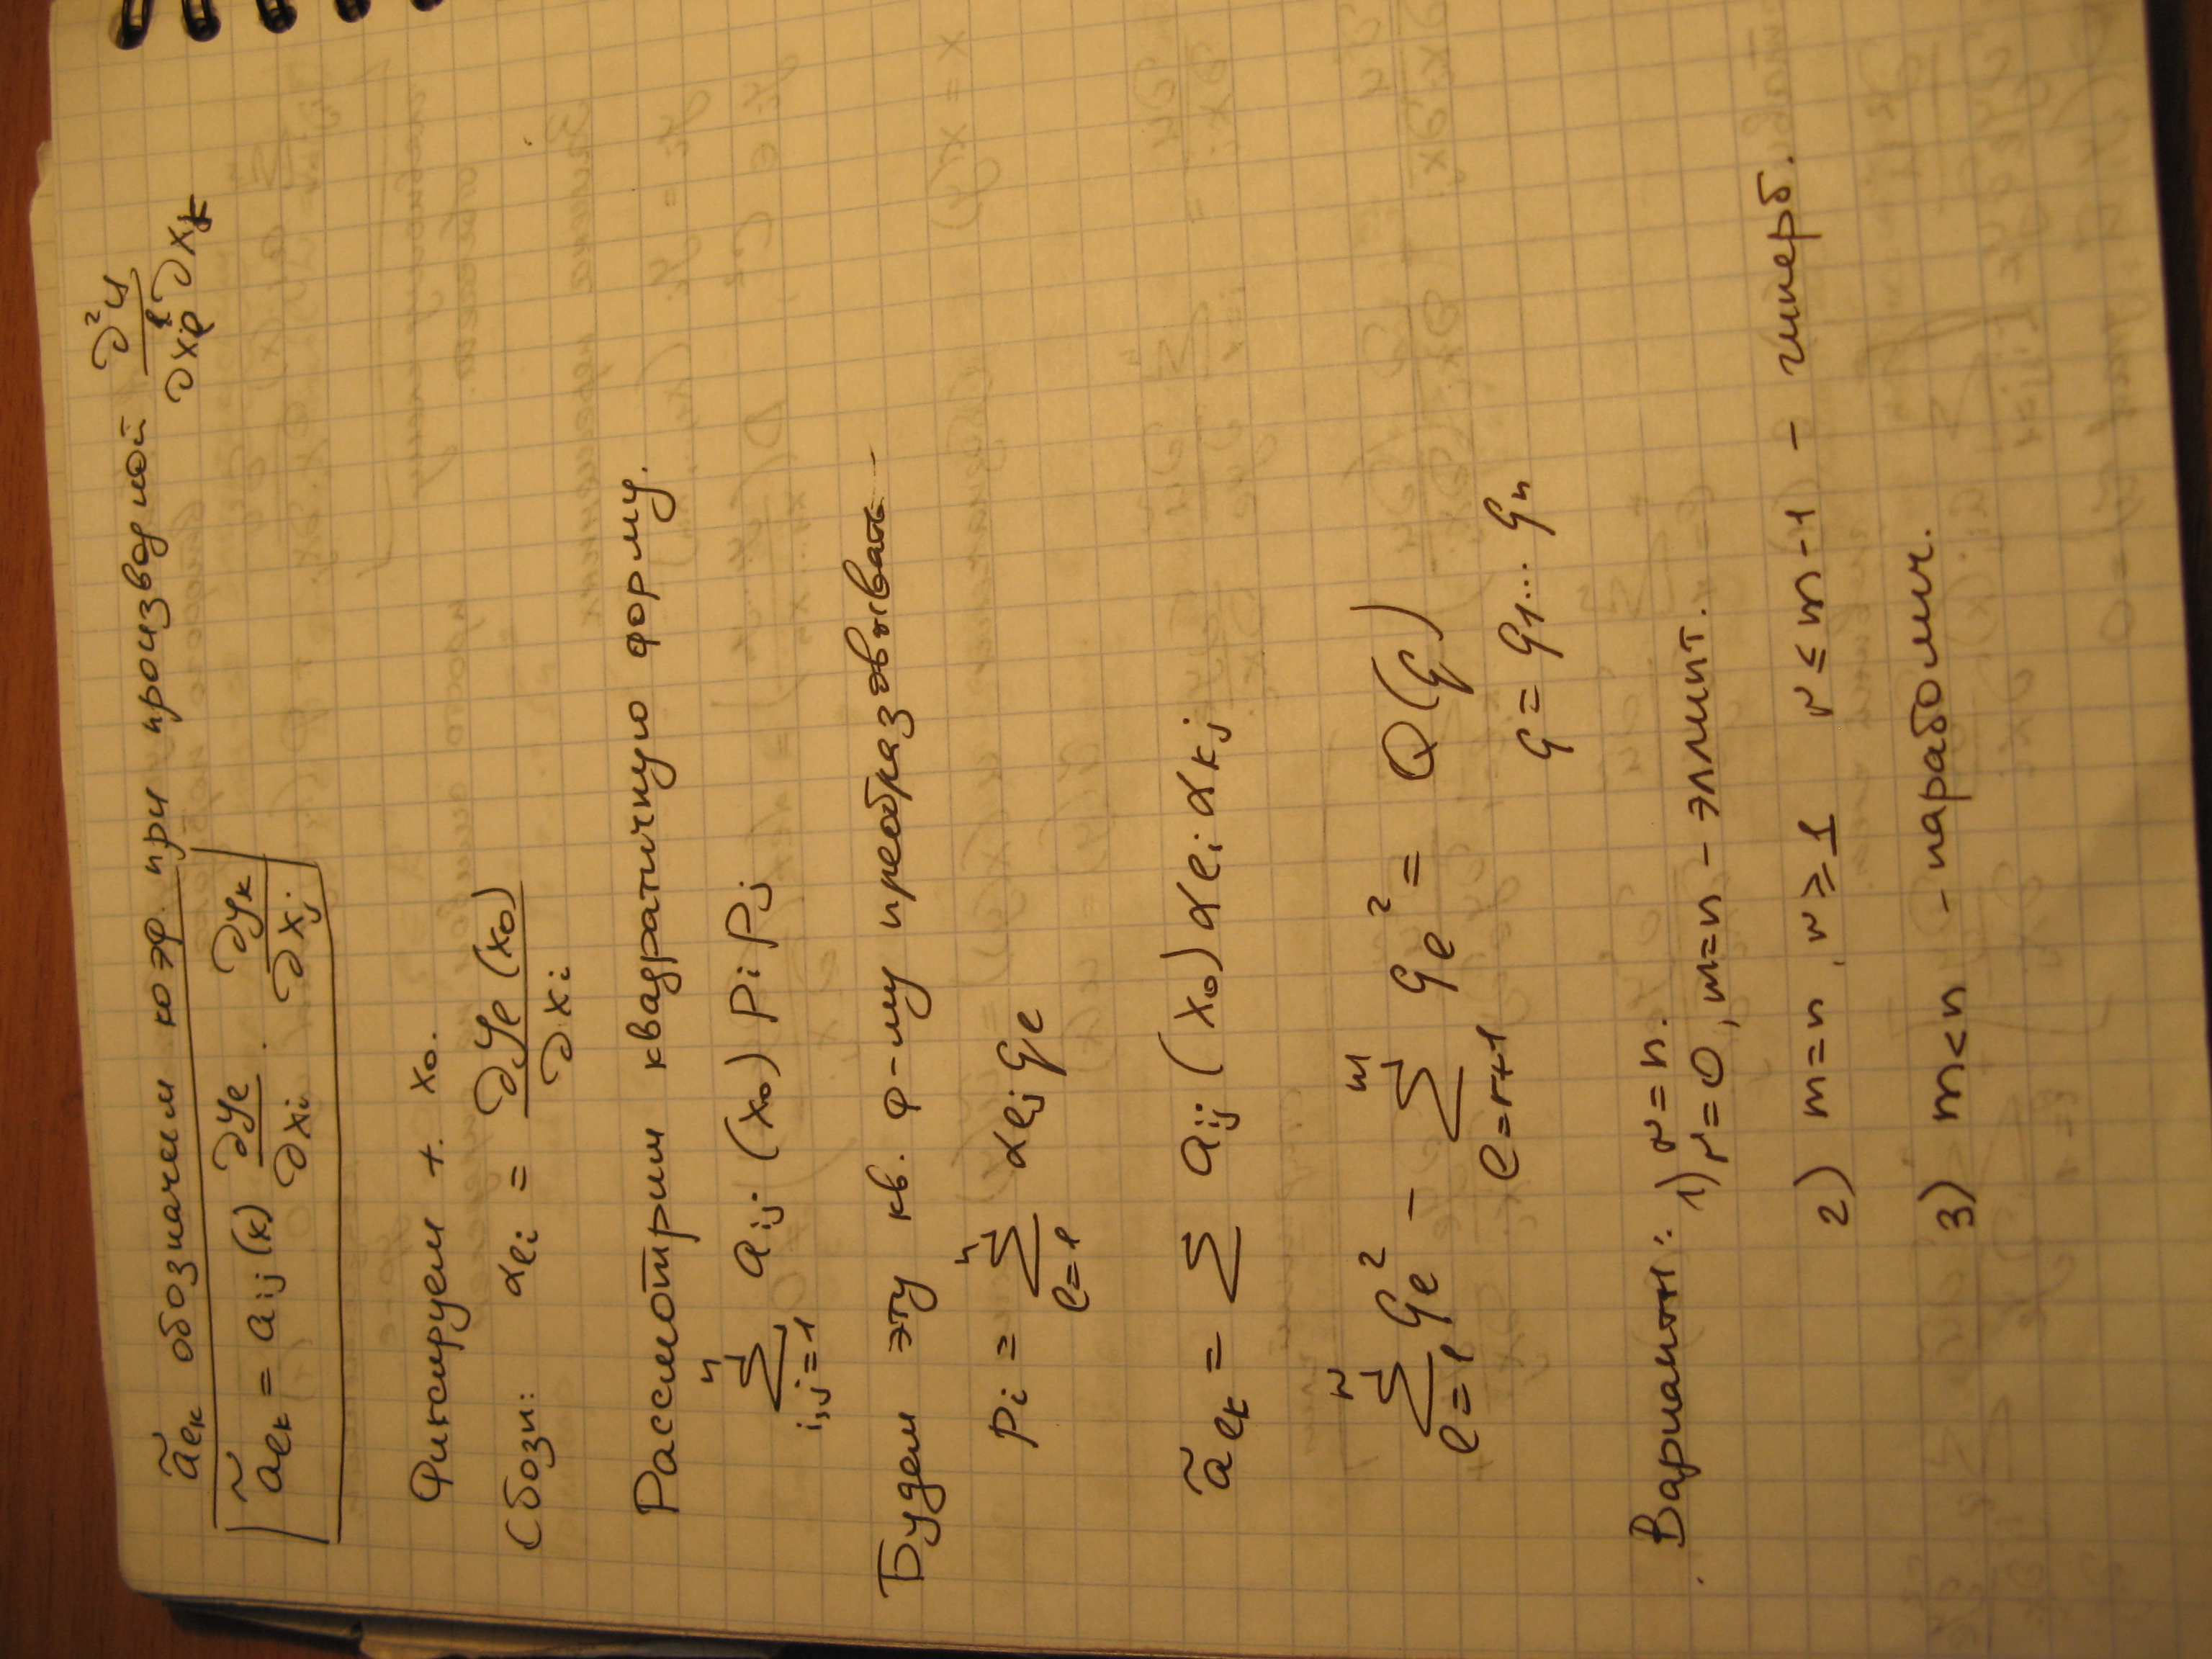 ã_{ℓk} обозначаем коэф. при производной ∂²u / ∂x_ℓ ∂x_k
ã_{ℓk} = a_{ij}(x) ∂y_ℓ/∂x_i · ∂y_k/∂x_j
Фиксируем т. x₀.
Обозн: α_{ℓi} = ∂y_ℓ(x₀)/∂x_i
Рассмотрим квадратичную форму.
∑_{i,j=1}^{n} a_{ij}(x₀) p_i p_j
Будем эту кв. ф-му преобраз
p_i = ∑_{ℓ=1}^{n} α_{ℓj} q_ℓ
ã_{ℓk} = ∑ a_{ij}(x₀) α_{ℓi} α_{kj}
∑_{ℓ=1}^{r} q_ℓ² − ∑_{ℓ=r+1}^{m} q_ℓ² = Q(q)
q = q₁... q_n
Варианты: 1) r=n.
r=0, m=n – эллипт.
2) m=n, r ≥ 1 r ≤ n-1 – гиперб.
3) m<n - параболич.